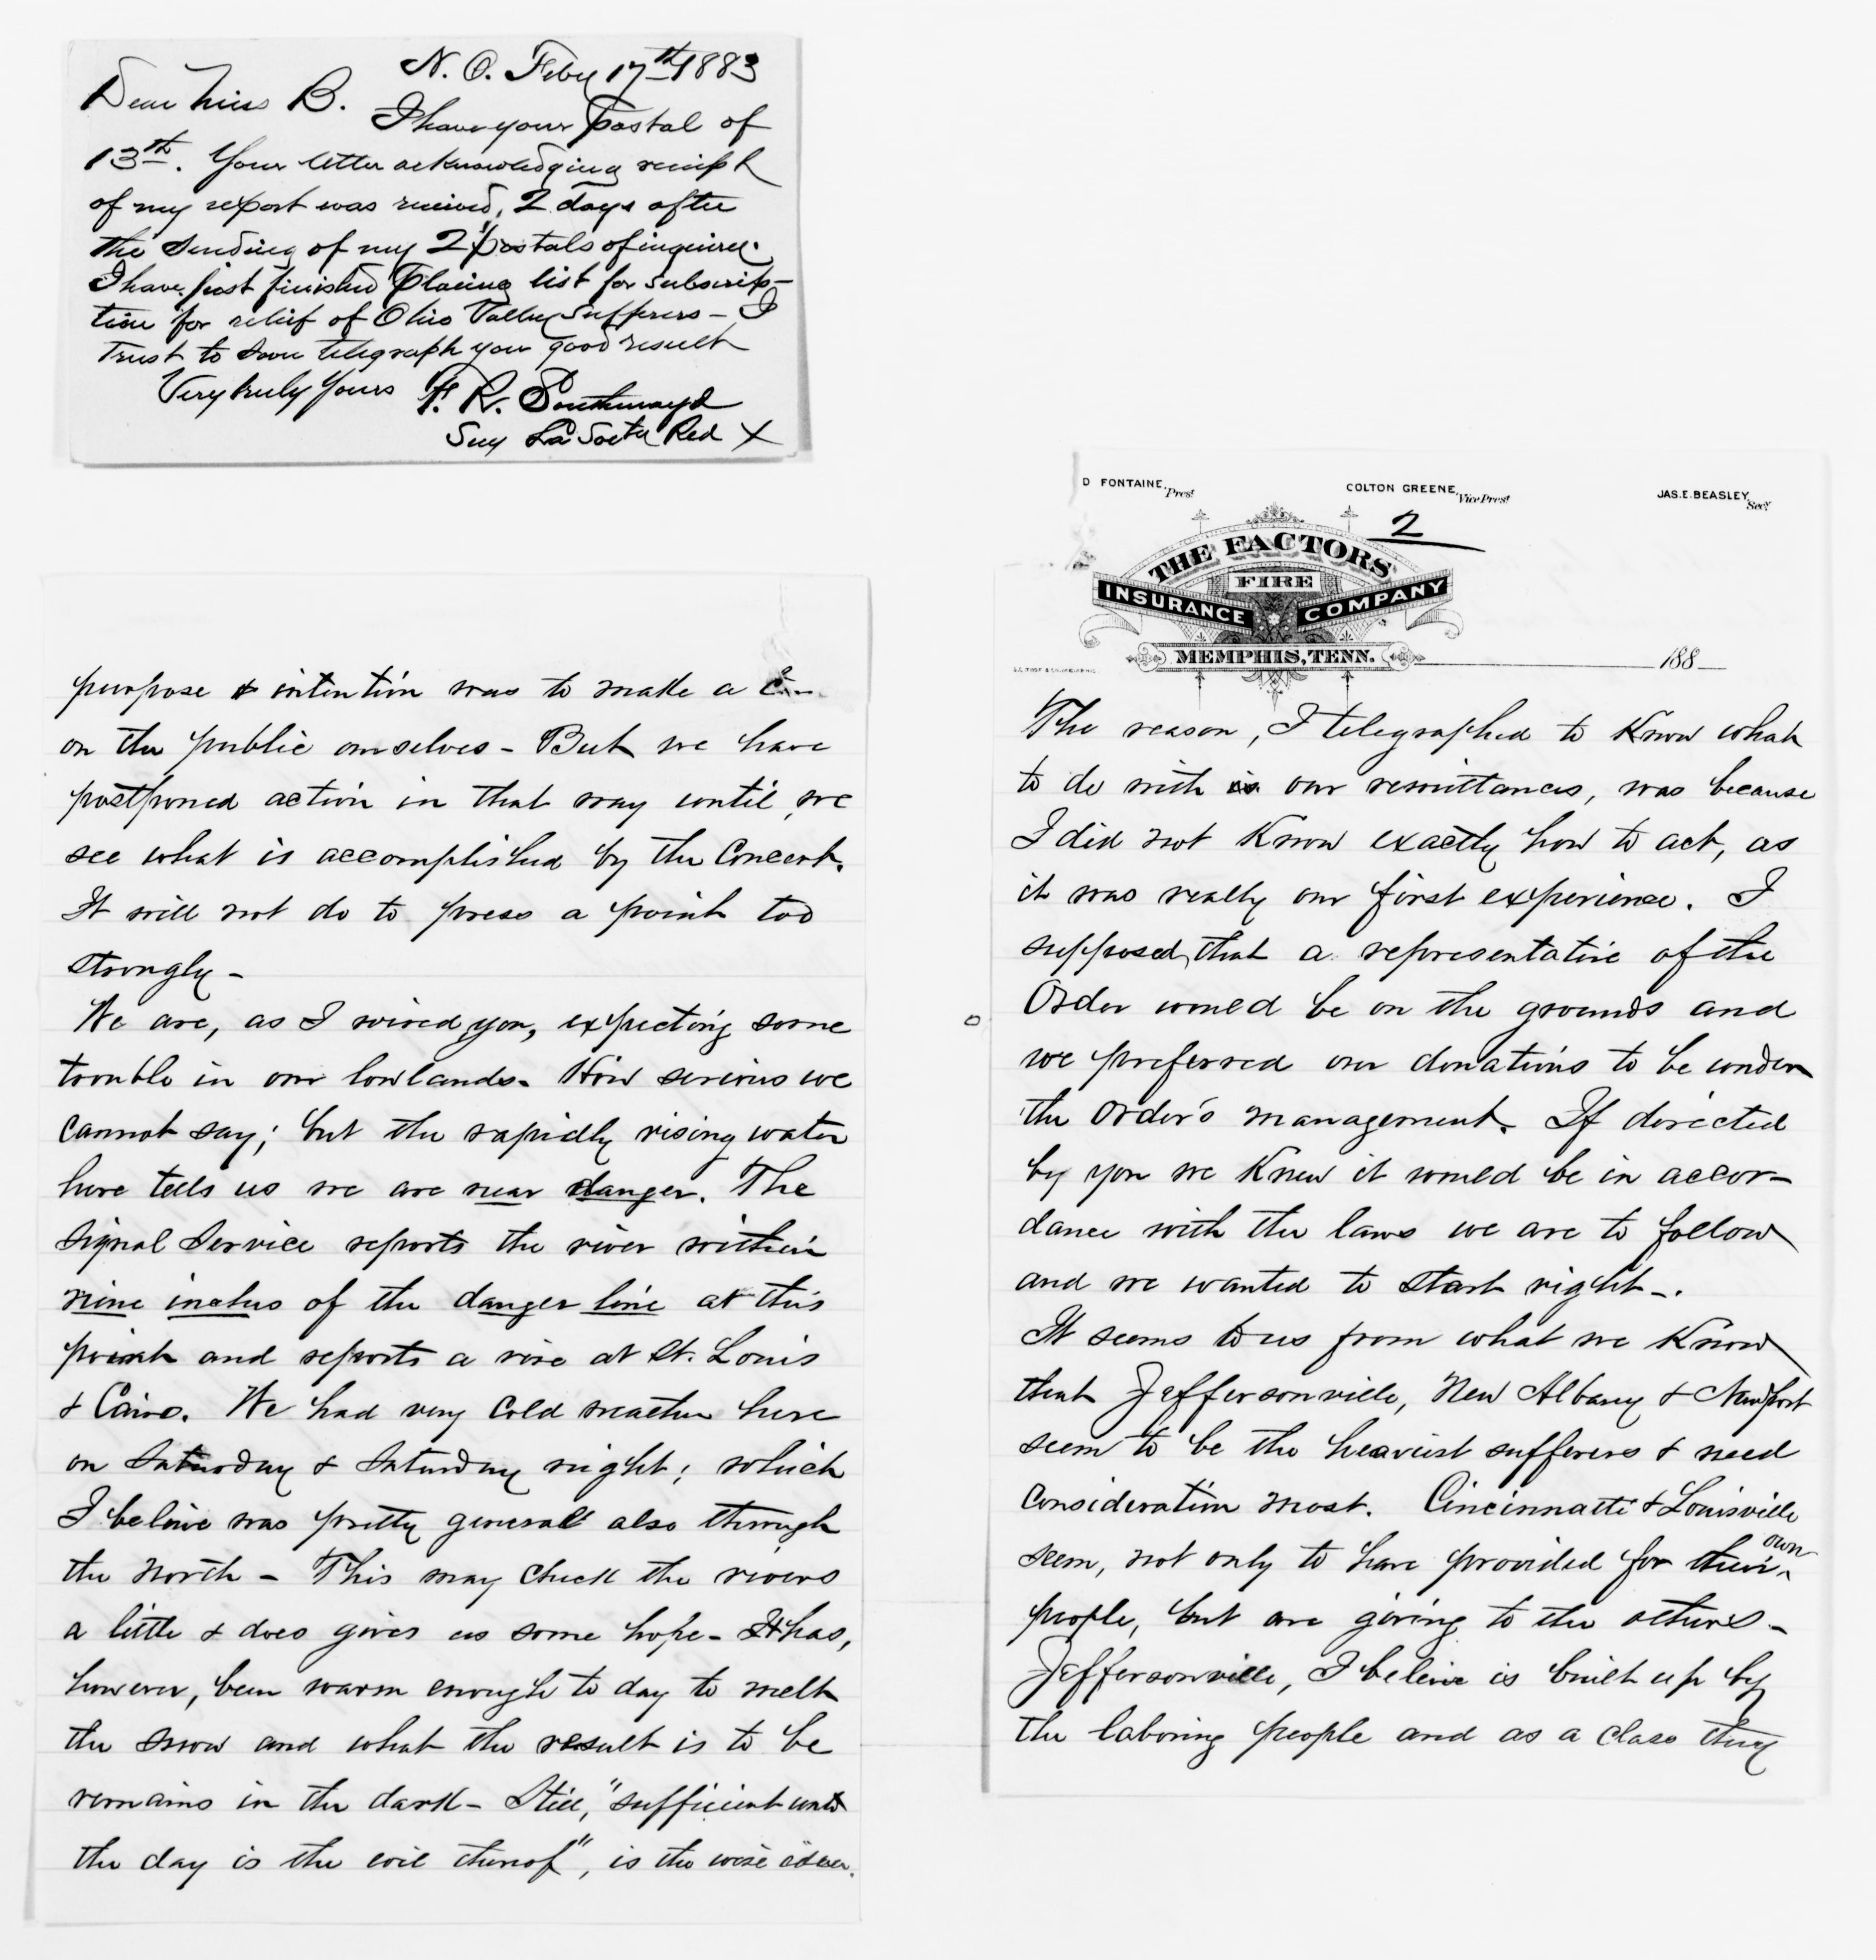 N. O. Feby 17th 1883
Dear Miss B.
I have your postal of
13th. Your letter acknowledging receipt
of my report was received, 2 days after
the sending of my 2d postals of inquiry.
I have just finished placing list for subscrip-
tion for relief of Ohio Valley Sufferers - I
Trust to soon telegraph you good result
Very truly yours F. R. Southmayd
Secy La Soctu Red X
purpose & intention was to make a
on the public ourselves - But we have
postponed action in that way until, we
see what is accomplished by the Concert.
It will not do to press a point too
strongly -
We are, as I wired you, expecting some
trouble in our lowlands. How serious we
cannot say; but the rapidly rising water
here tells us we are near danger. The
Signal Service reports the river within
nine inches of the danger line at this
point and reports a rise at St. Louis
& Cairo. We had very cold weather here
on Saturday & Saturday night; which
I believe was pretty general also through
the North - This may check the rivers
a little & does gives us some hope - It has,
however, been warm enough to day to melt
the snow and what the result is to be
remains in the dark - Still, "sufficient unto
the day is the evil thereof", is the wise
D FONTAINE, Prest
COLTON GREENE, Vice Prest
JAS. E. BEASLEY, Secy
2
THE FACTORS
FIRE
INSURANCE COMPANY
MEMPHIS, TENN.
188
The reason, I telegraphed to know what
to do with our remittances, was because
I did not know exactly how to act, as
it was really our first experience. I
supposed, that a representative of the
Order would be on the grounds and
we preferred our donations to be under
the order's management. If directed
by you we knew it would be in accor-
dance with the laws we are to follow
and we wanted to start right -.
It seems to us from what we know
that Jeffersonville, New Albany & Newport
seem to be the heaviest sufferers & need
consideration most. Cincinnatti & Louisville
seem, not only to have provided for their own
people, but are giving to the others -
Jeffersonville, I believe is built up by
the laboring people and as a class they